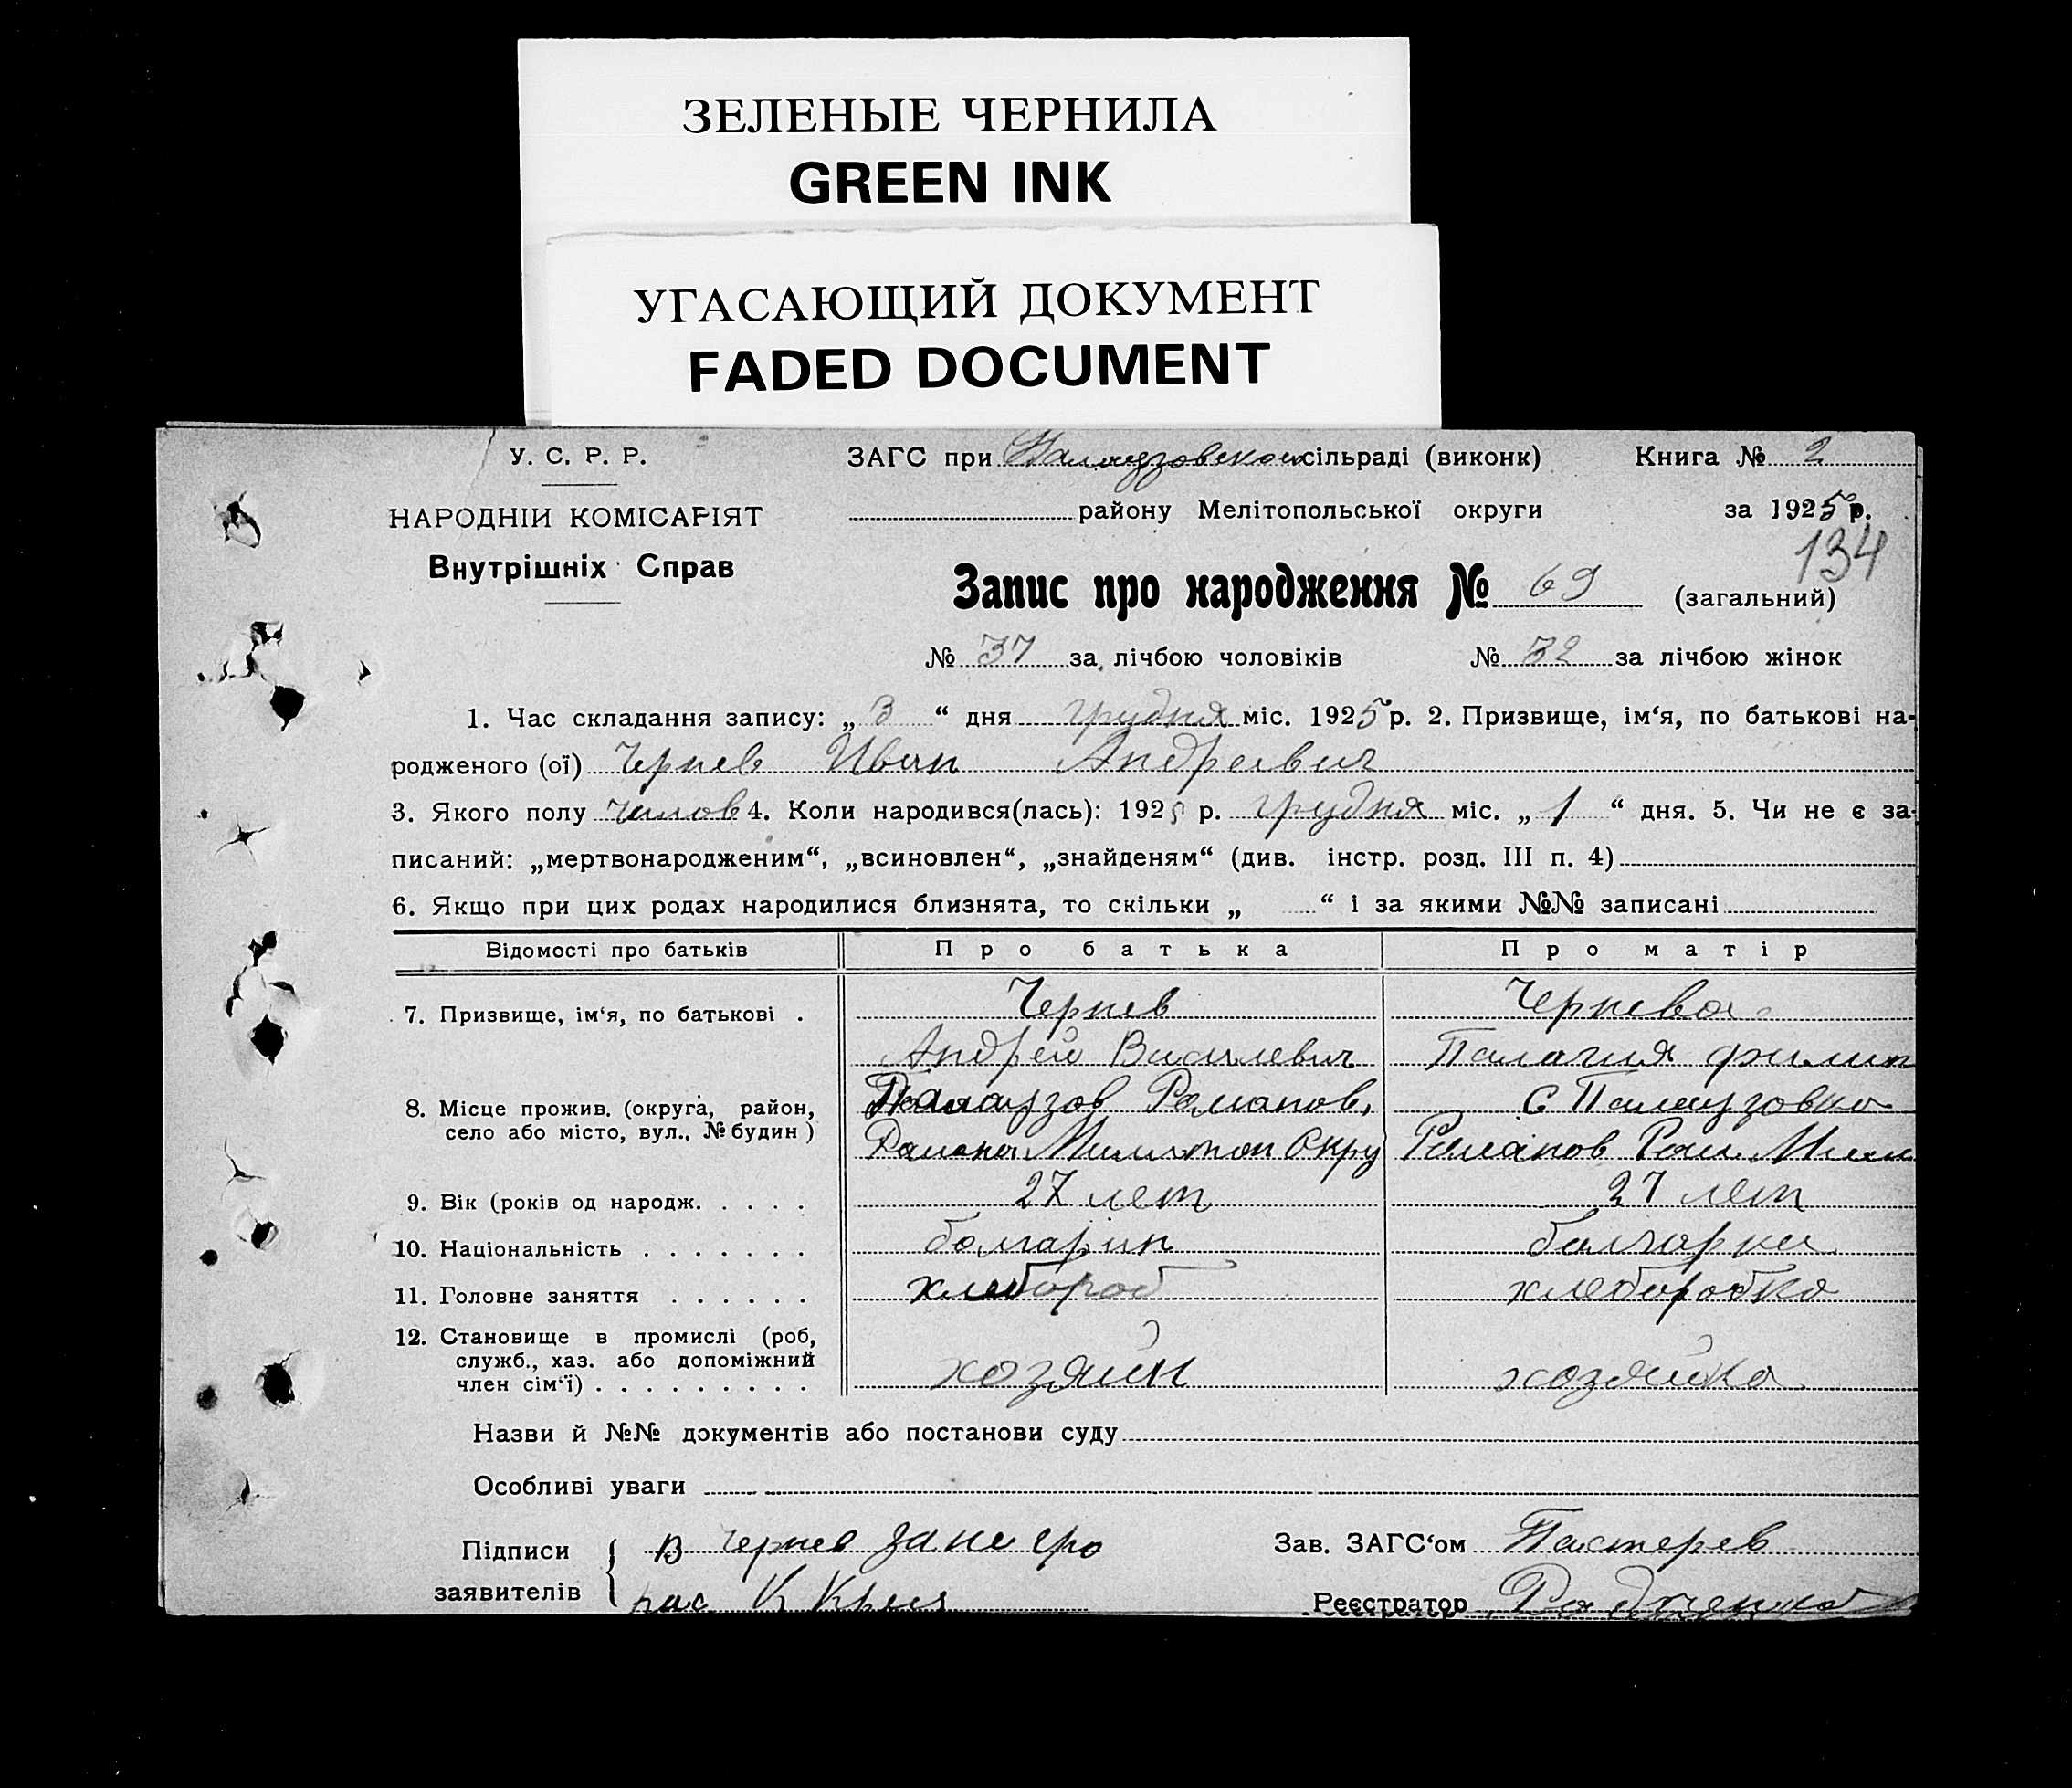 ЗЕЛЕНЫЕ ЧЕРНИЛА
GREEN INK
УГАСАЮЩИЙ ДОКУМЕНТ
FADED DOCUMENT
У. С. Р. Р. ЗАГС при сільраді (виконк) Книга № 2
НАРОДНІЙ КОМІСАРІЯТ району Мелітопольської округи за 1925 р.
134
Внутрішніх Справ
Запис про народження № 69 (загальний)
№ 37 за лічбою чоловіків № 32 за лічбою жінок
1. Час складання запису: „3“ дня грудня міс. 1925 р. 2. Призвище, ім‘я, по батькові на-
родженого (ої) Чернев Иван Андреевич
3. Якого полу 4. Коли народився(лась): 1925 р. грудня міс. „1“ дня. 5. Чи не є за-
писаний: „мертвонародженим“, „всиновлен“, „знайденям“ (див. інстр. розд. III п. 4)
6. Якщо при цих родах народилися близнята, то скільки „ “ і за якими №№ записані
Відомості про батьків Про батька Про матір
7. Призвище, ім‘я, по батькові . Чернев Чернева
Андрей Василевич Палагия Филип
8. Місце прожив. (округа, район, Палаузов Романов, с Палаузовка
село або місто, вул., № будин) Романов
9. Вік (років од народж. . . . . 27 лет 27 лет
10. Національність . . . . . . . болгарин болгарка
11. Головне заняття . . . . . . хлебороб хлеборобка
12. Становище в промислі (роб,
служб., хаз. або допоміжний
член сім‘ї) . . . . . . . . . хозяйн хозяйка
Назви й №№ документів або постанови суду
Особливі уваги
Підписи В Чернев за не гра Зав. ЗАГС‘ом Пастерев
заявителів Реєстратор Радченко